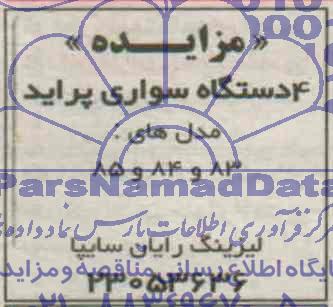 « مزایـــده »
۴دستگاه سواری پراید
مدل های :
۸۳ و ۸۴ و ۸۵
ParsNamadData
مرکز فرآوری اطلاعات پارس نماد داده
لیزینگ رایان سایپا
پایگاه اطلاع رسانی مناقصه و مزایده
۲۳۰۵۳۶۳۶